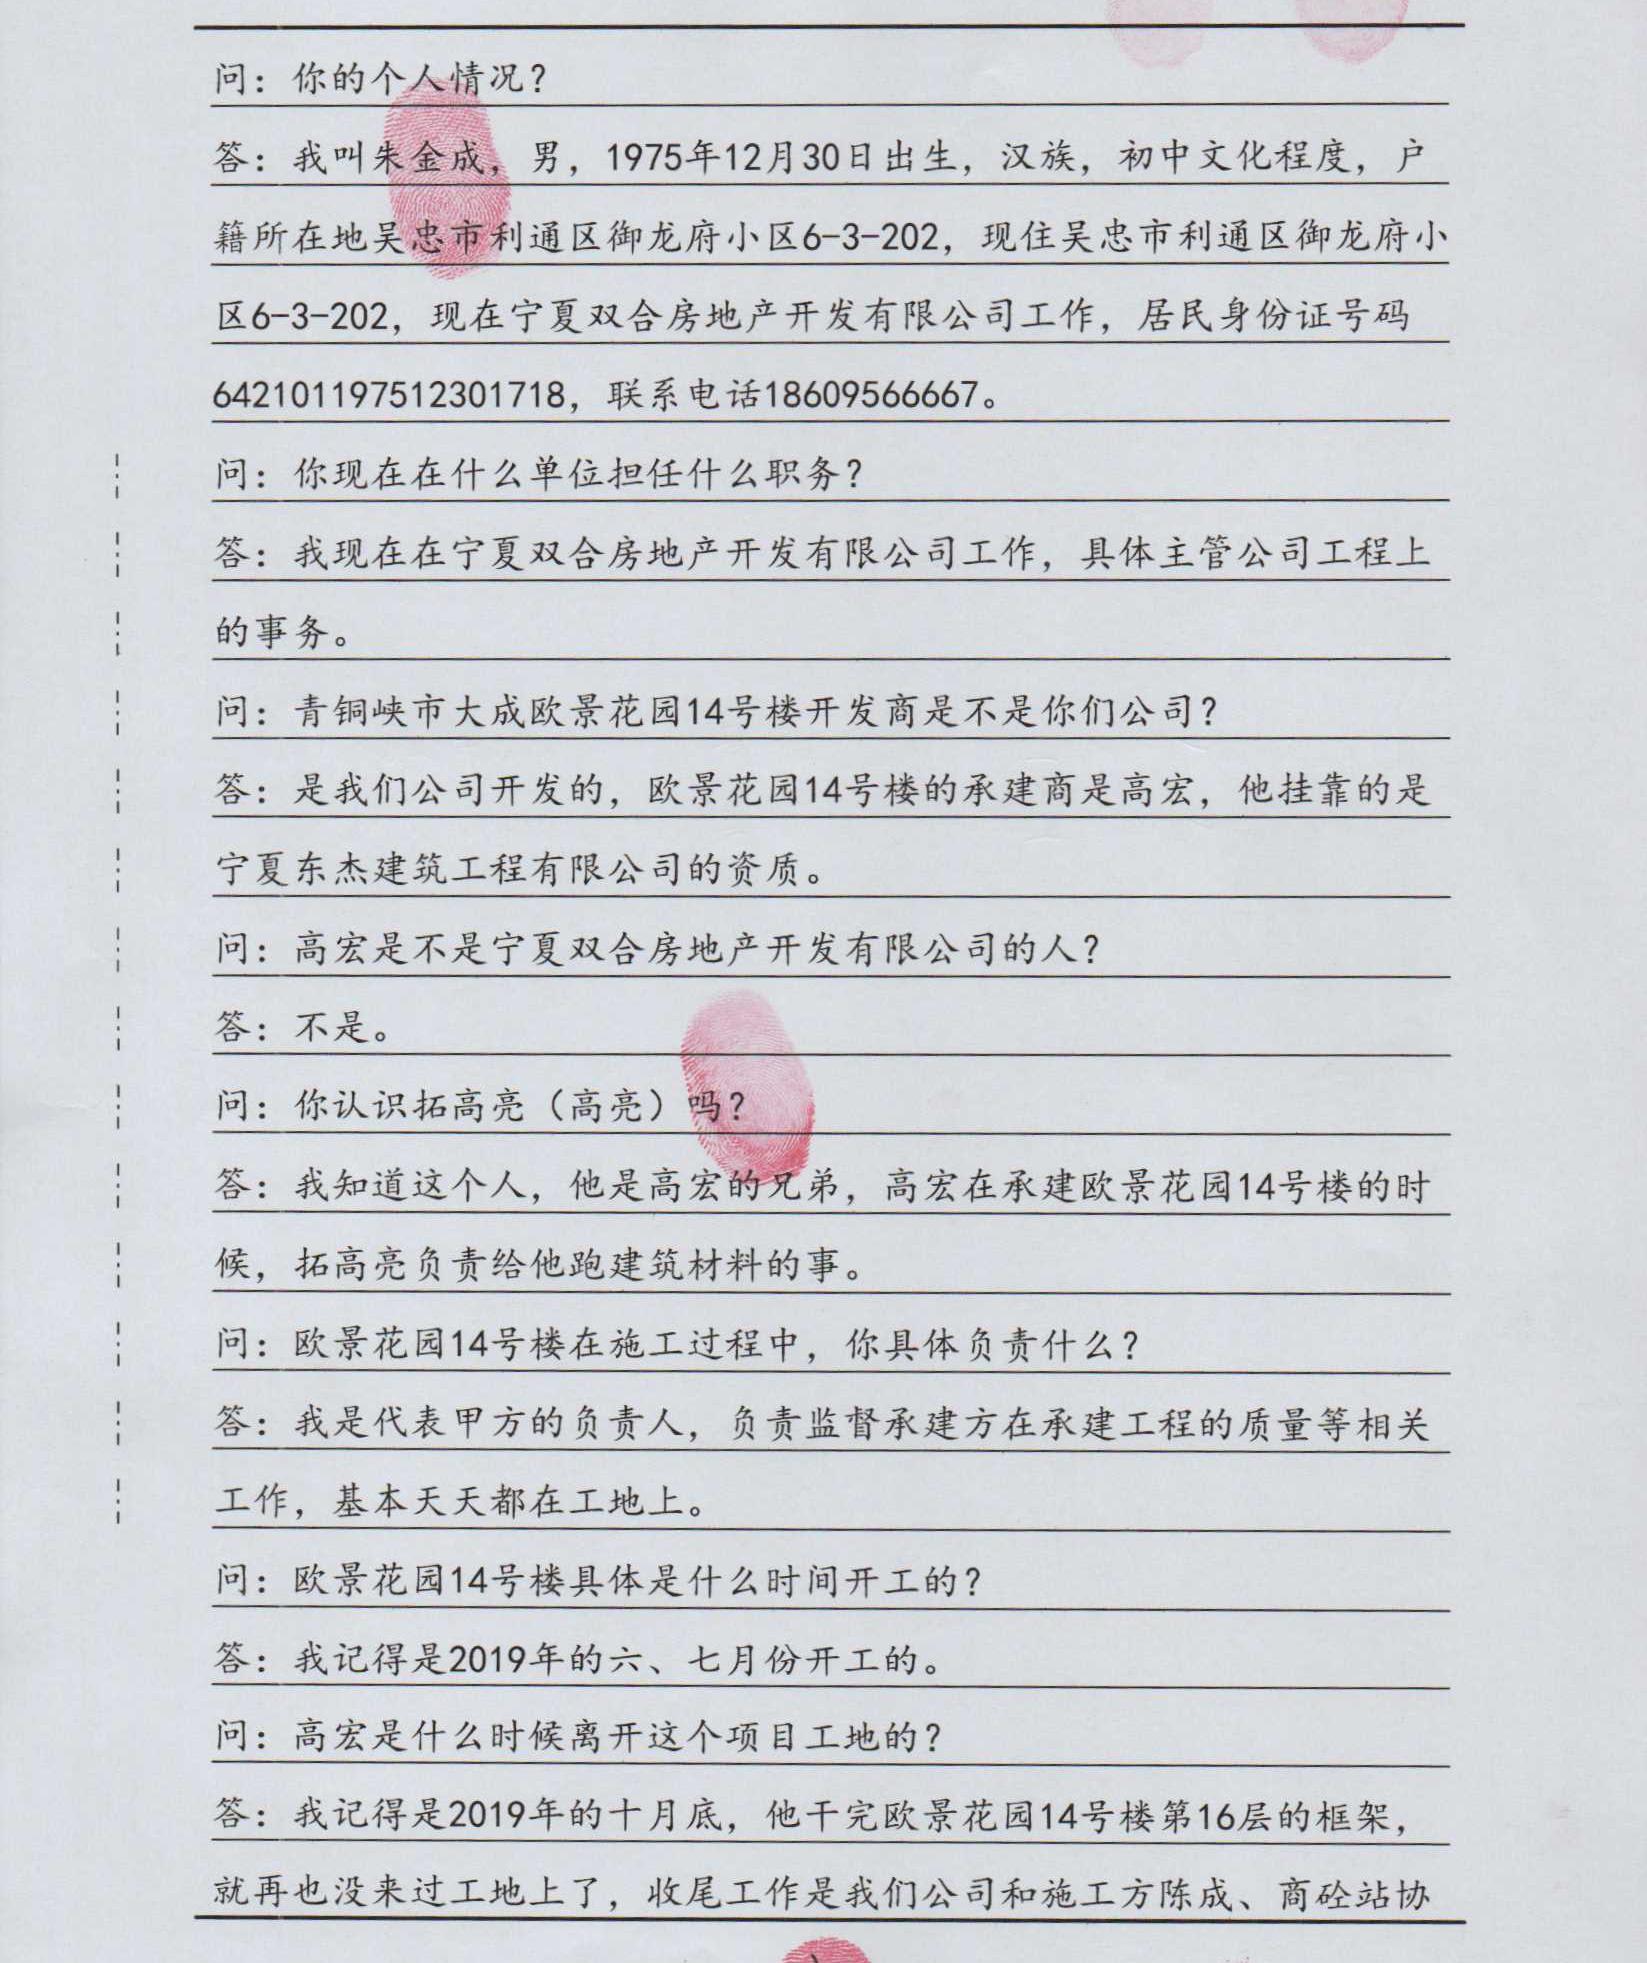 问：你的个人情况？
答：我叫朱金成，男，1975年12月30日出生，汉族，初中文化程度，户
籍所在地吴忠市利通区御龙府小区6-3-202，现住吴忠市利通区御龙府小
区6-3-202，现在宁夏双合房地产开发有限公司工作，居民身份证号码
642101197512301718，联系电话18609566667。
问：你现在在什么单位担任什么职务？
答：我现在在宁夏双合房地产开发有限公司工作，具体主管公司工程上
的事务。
问：青铜峡市大成欧景花园14号楼开发商是不是你们公司？
答：是我们公司开发的，欧景花园14号楼的承建商是高宏，他挂靠的是
宁夏东杰建筑工程有限公司的资质。
问：高宏是不是宁夏双合房地产开发有限公司的人？
答：不是。
问：你认识拓高亮（高亮）吗？
答：我知道这个人，他是高宏的兄弟，高宏在承建欧景花园14号楼的时
候，拓高亮负责给他跑建筑材料的事。
问：欧景花园14号楼在施工过程中，你具体负责什么？
答：我是代表甲方的负责人，负责监督承建方在承建工程的质量等相关
工作，基本天天都在工地上。
问：欧景花园14号楼具体是什么时间开工的？
答：我记得是2019年的六、七月份开工的。
问：高宏是什么时候离开这个项目工地的？
答：我记得是2019年的十月底，他干完欧景花园14号楼第16层的框架，
就再也没来过工地上了，收尾工作是我们公司和施工方陈成、商砼站协